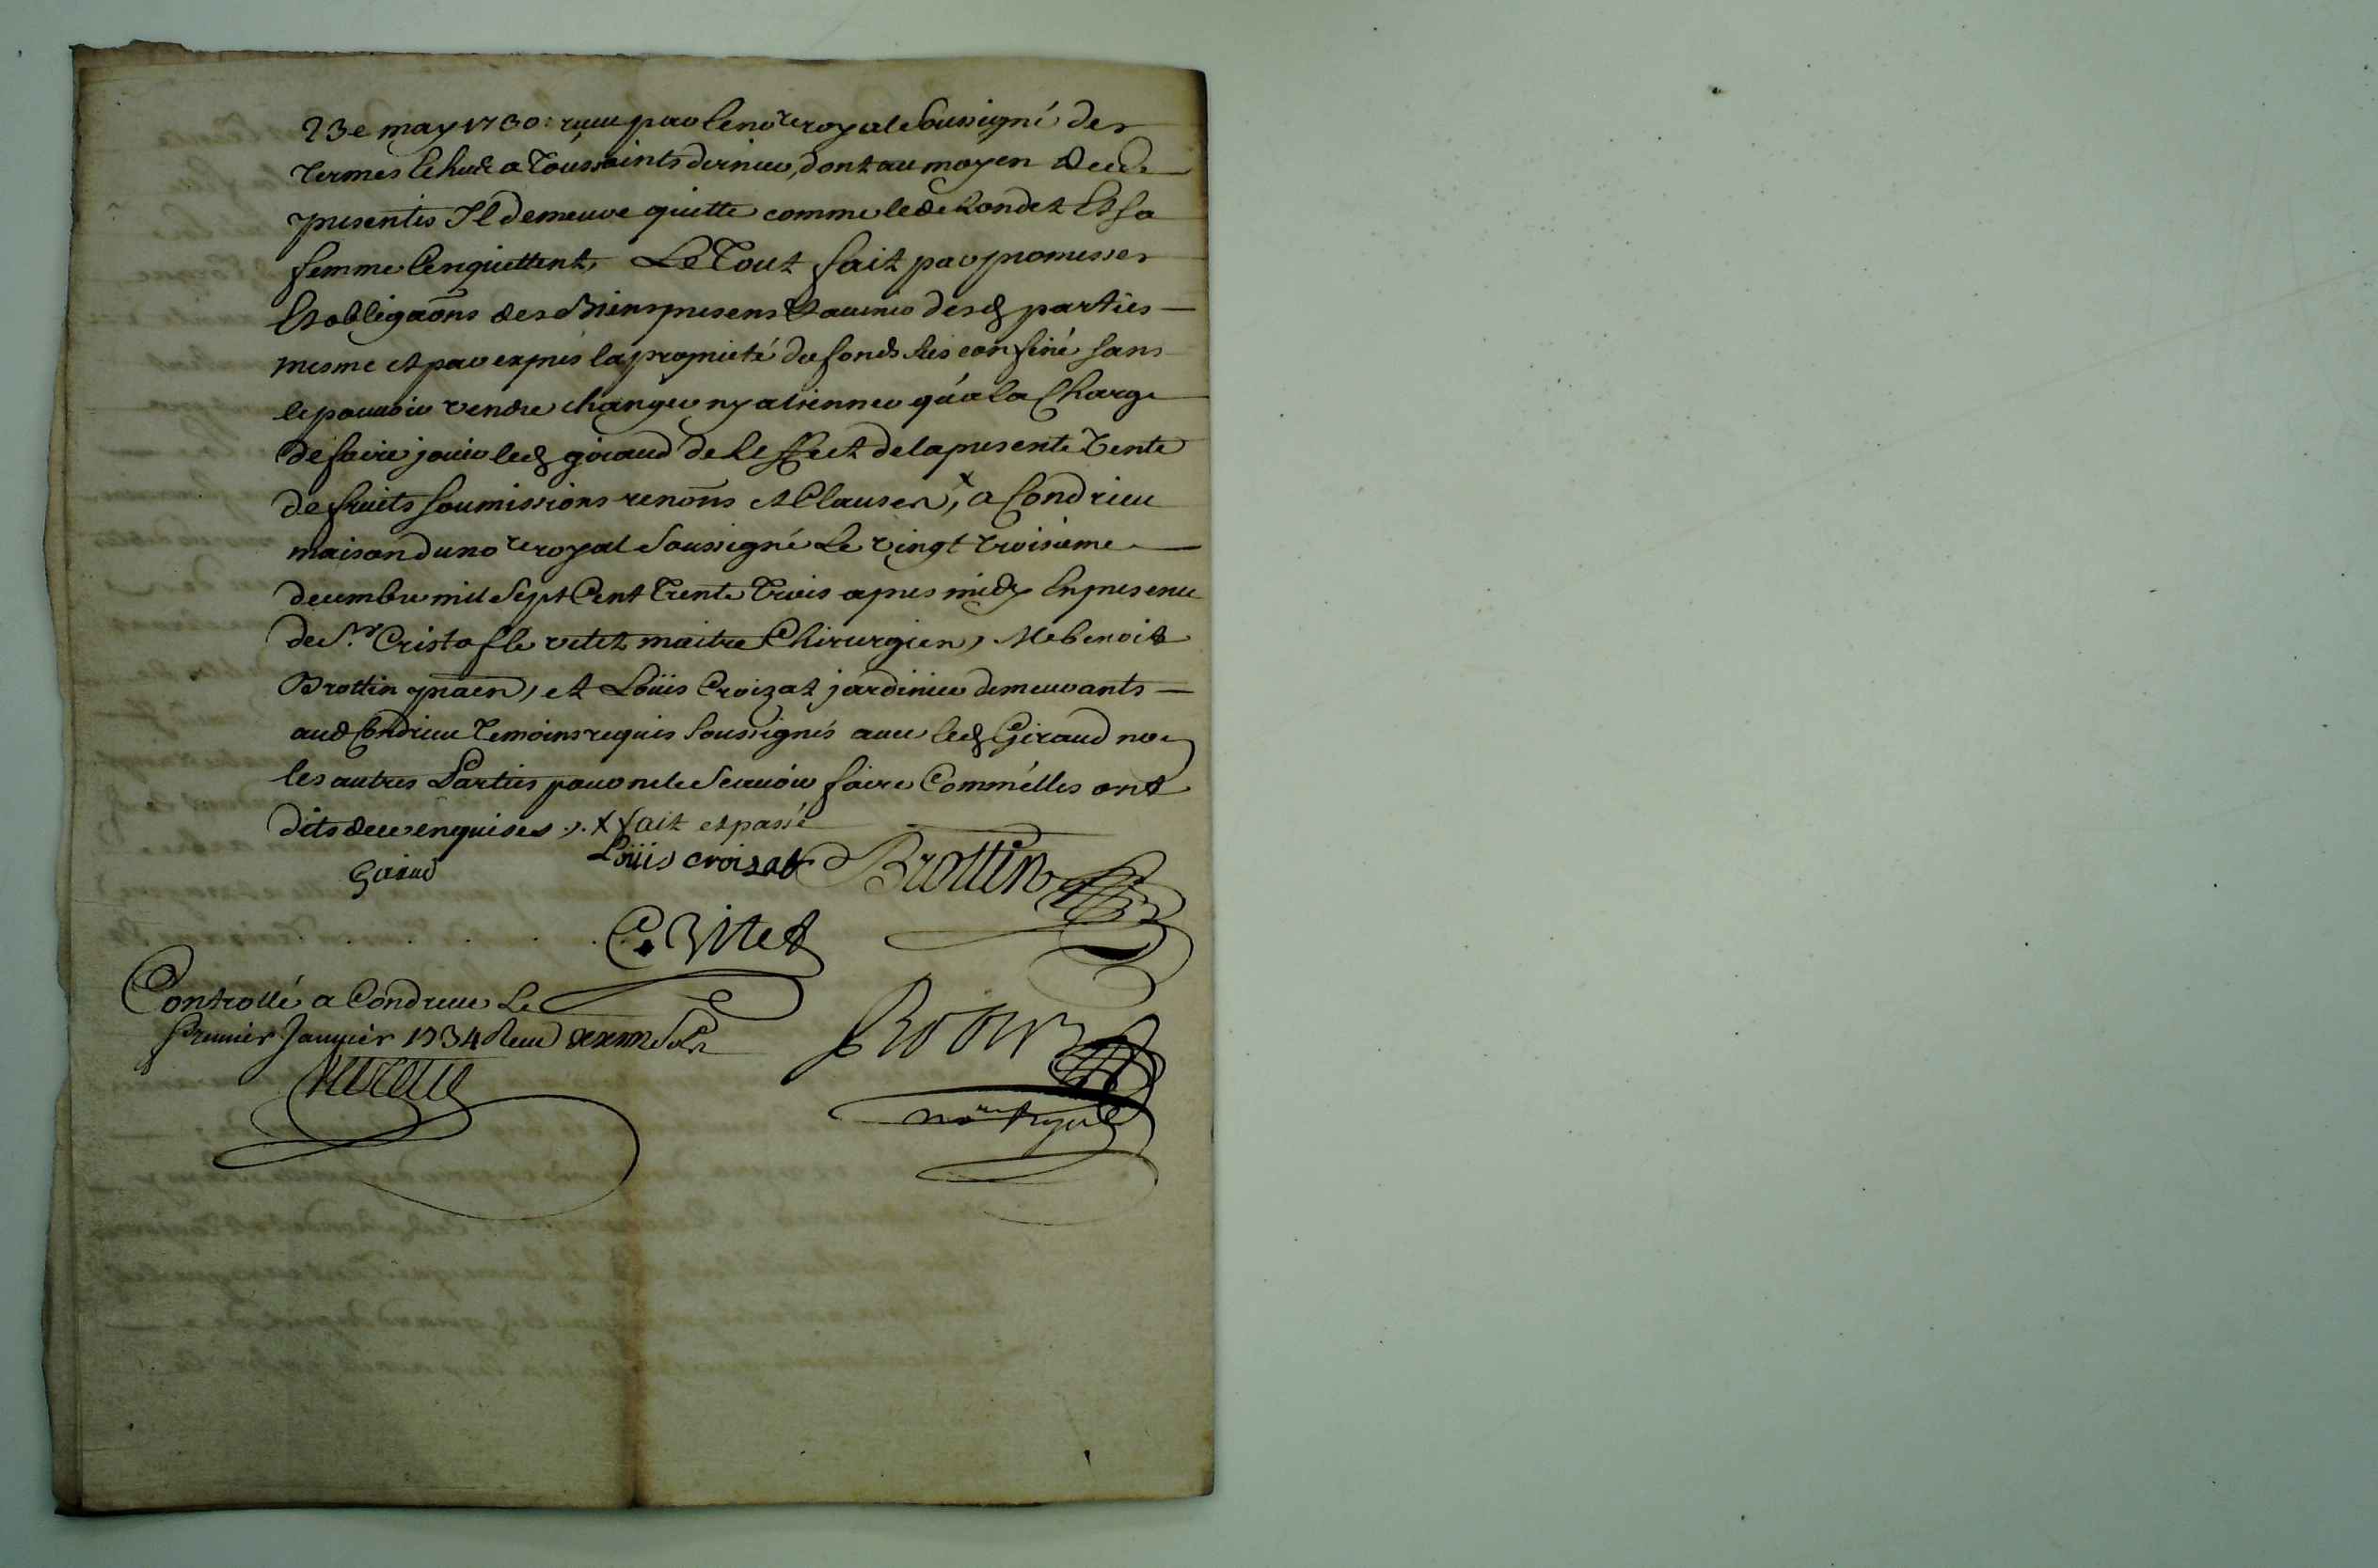 23e may 1730: receu par le nore royal Soussigné des
termes Echus a Toussaints dernier, dont au moyen de ce
presentes Il demeure quitte comme led Rondet Et sa
femme l'enquittent, Le Tout fait par promesses
Et obligaōns des Biens presens & avenir desd parties —
mesme et par exprés la proprieté du fonds sus confiné sans
le pouvoir vendre changer ny alienner qu'a la Charge
de faire jouir led giraud de l'effect de la presente Vente
de fruits soumissions renōns et Clauses, x a Condrieu
maison du nore royal Soussigné Le vingt troisieme —
decembre mil Sept Cent Trente Trois apres midy En presence
de Sr. Cristofle vitet maitre Chirurgien, Me benoit
Brottin prāen, et Loüis Croizat jardinier demeurants —
aud Condrieu temoins requis Soussignés avec led Giraud non
les autres Parties pour ne le Scavoir faire Comm'elles ont
dits de ce enquises ,. x fait et passé
Giraud Loüis croizat Brottin
C. Vitet
Controllé a Condrieu Le
Premier Januier 1734 Receu Sols
nore Royal